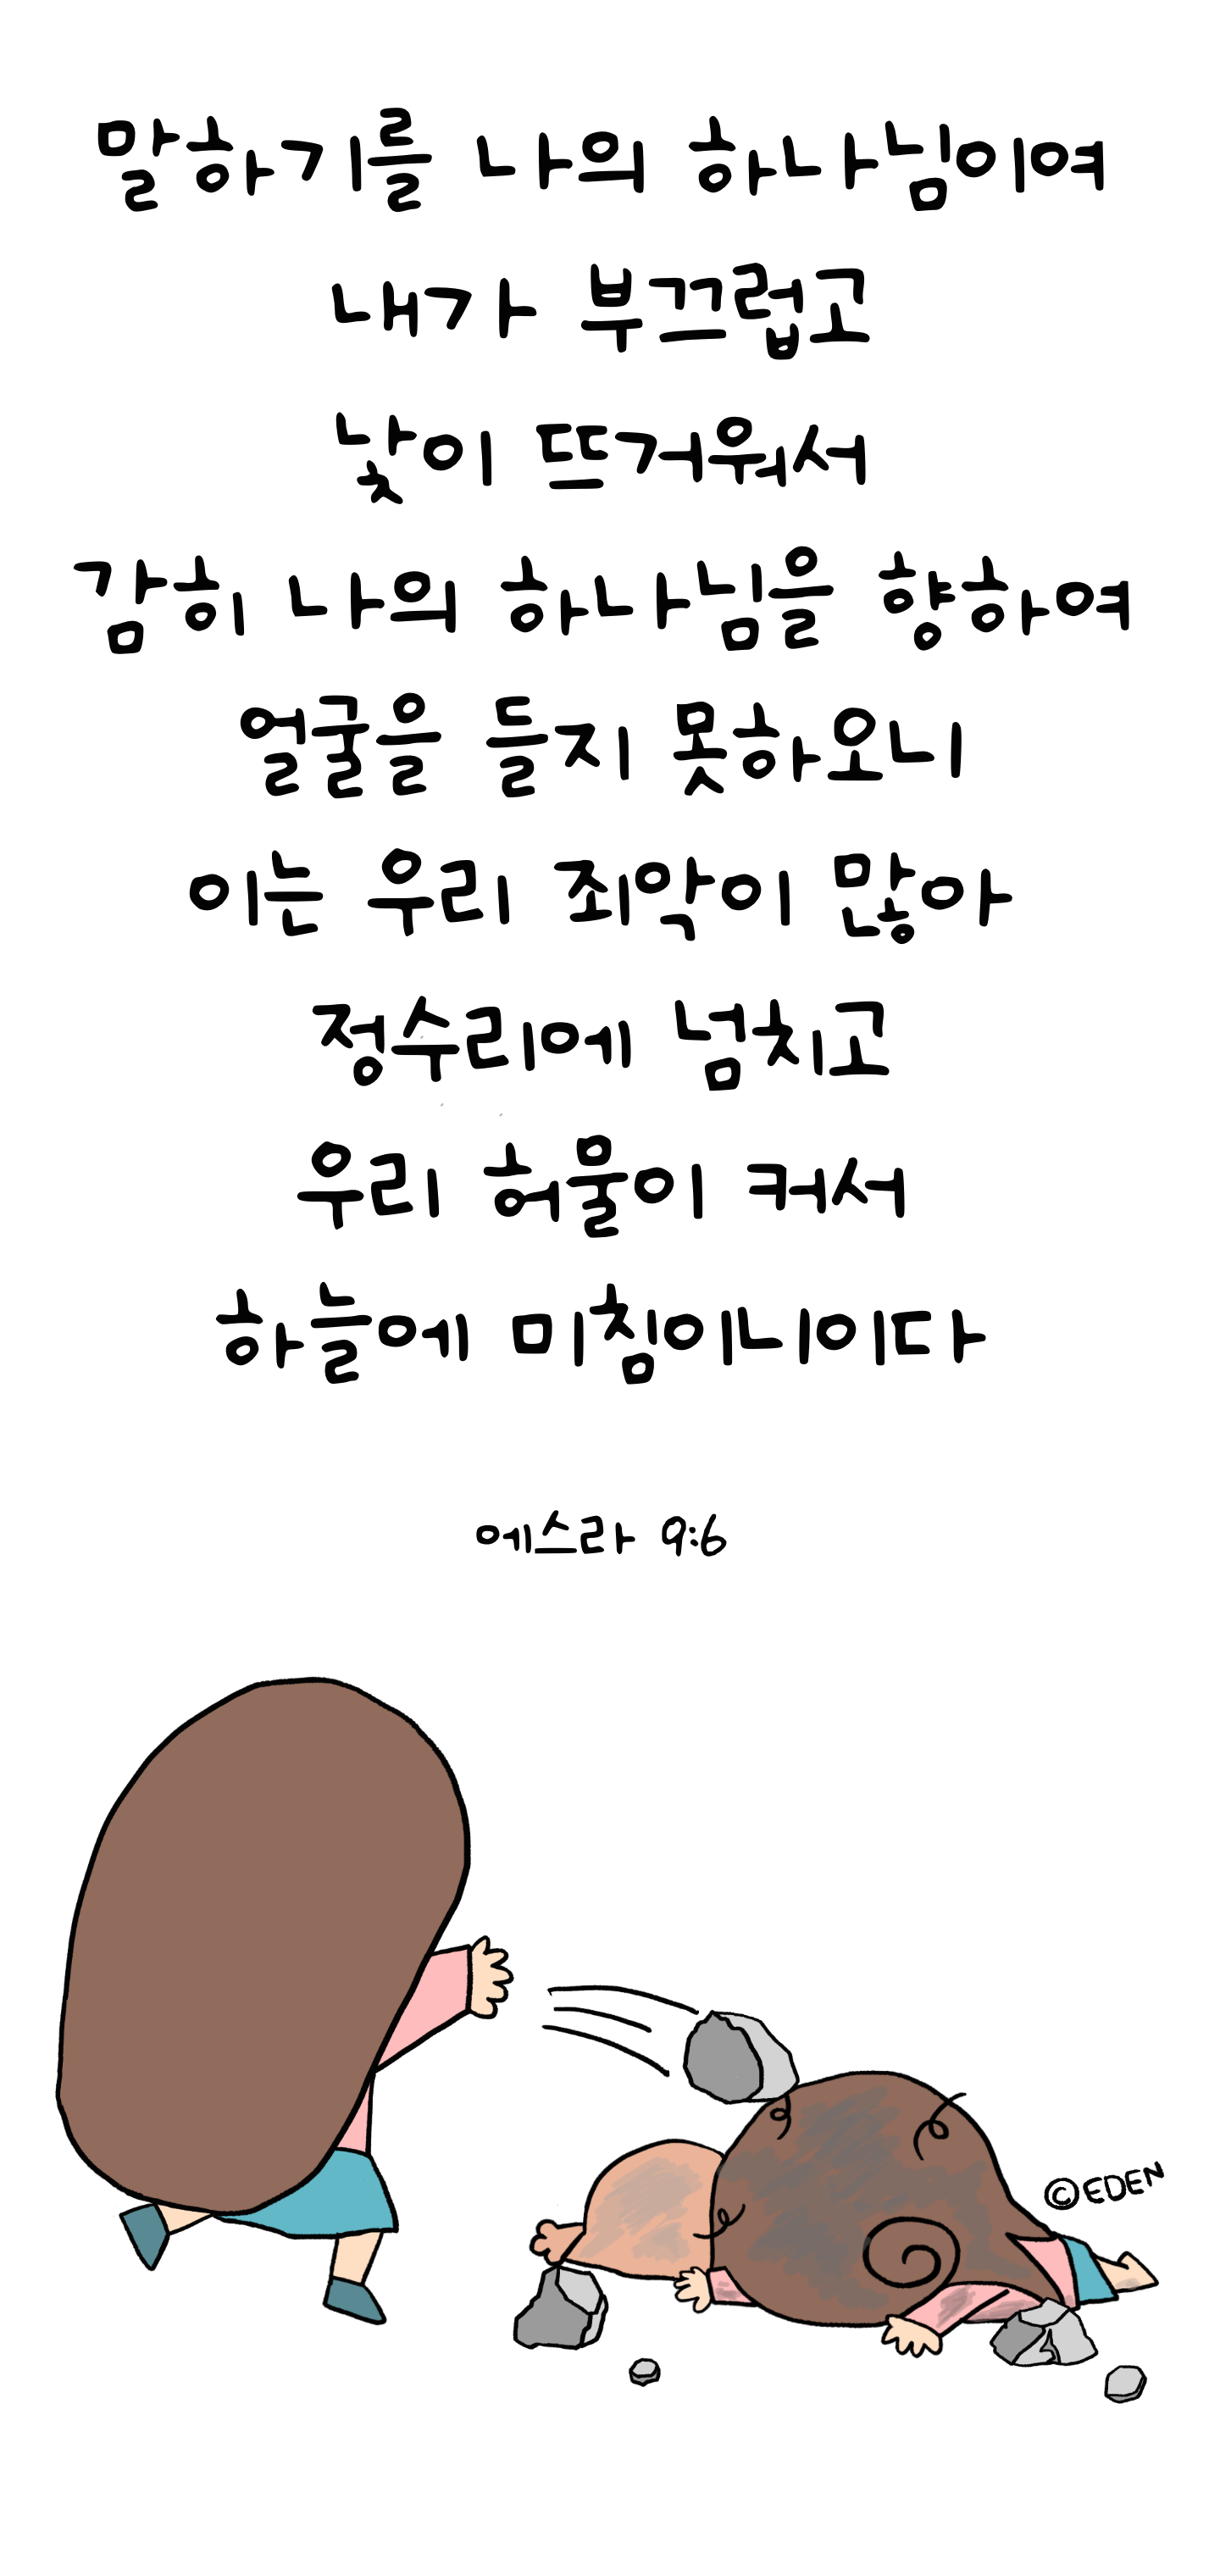 말하기를 나의 하나님이여
내가 부끄럽고
낯이 뜨거워서
감히 나의 하나님을 향하여
얼굴을 들지 못하오니
이는 우리 죄악이 많아
정수리에 넘치고
우리 허물이 커서
하늘에 미침이니이다
에스라 9:6
©EDEN